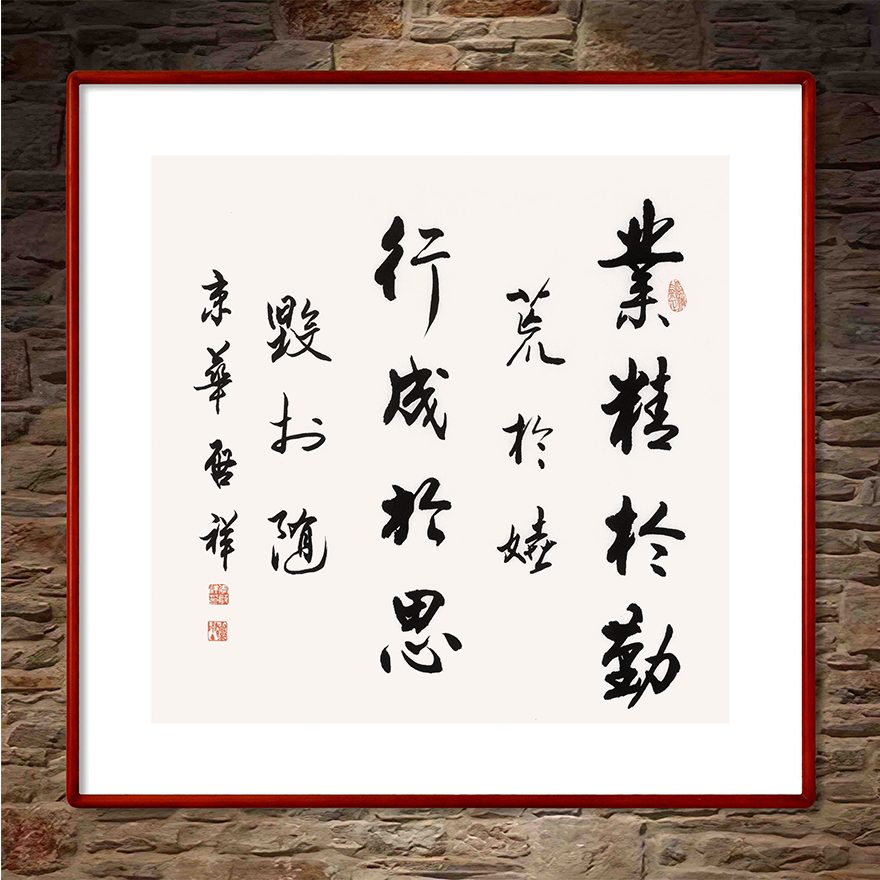 業精於勤
荒於嬉
行成於思
毀於隨
京華启祥